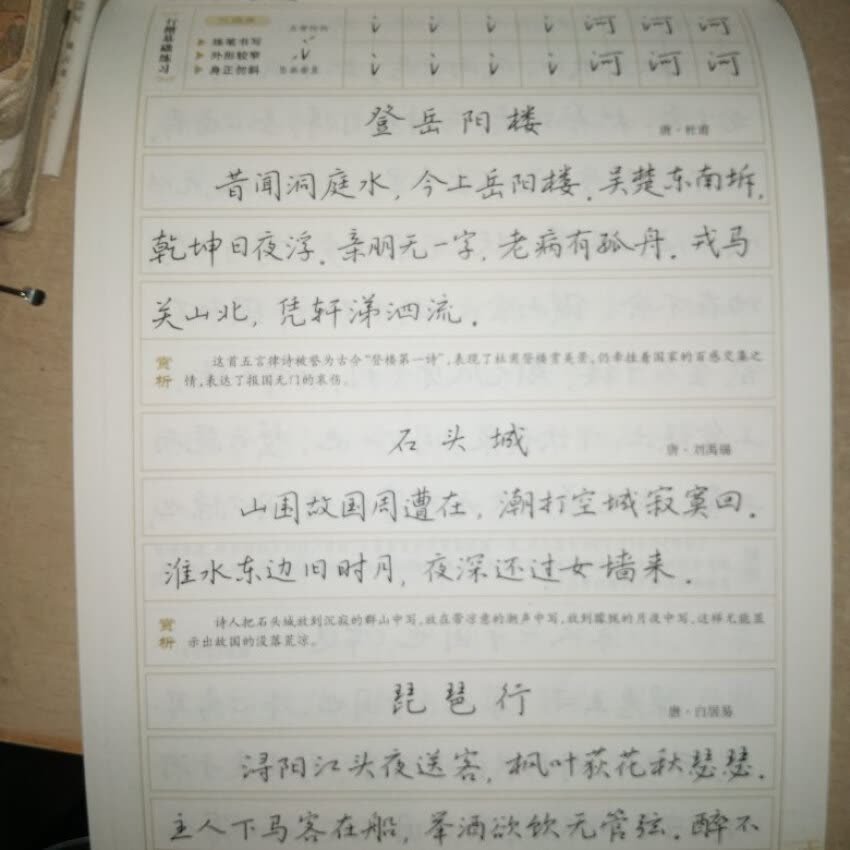 行楷基础练习
练笔书写
外形较窄
身正勿斜
河 河 河
河 河 河
登岳阳楼
唐·杜甫
昔闻洞庭水，今上岳阳楼。吴楚东南坼，
乾坤日夜浮。亲朋无一字，老病有孤舟。戎马
关山北，凭轩涕泗流。
赏析
这首五言律诗被誉为古今“登楼第一诗”，表现了杜甫登楼赏美景，仍牵挂着国家的百感交集之
情，表达了报国无门的哀伤。
石头城
唐·刘禹锡
山围故国周遭在，潮打空城寂寞回。
淮水东边旧时月，夜深还过女墙来。
赏析
诗人把石头城放到沉寂的群山中写，放在带凉意的潮声中写，放到朦胧的月夜中写，这样尤能显
示出故国的没落荒凉。
琵琶行
唐·白居易
浔阳江头夜送客，枫叶荻花秋瑟瑟。
主人下马客在船，举酒欲饮无管弦。醉不